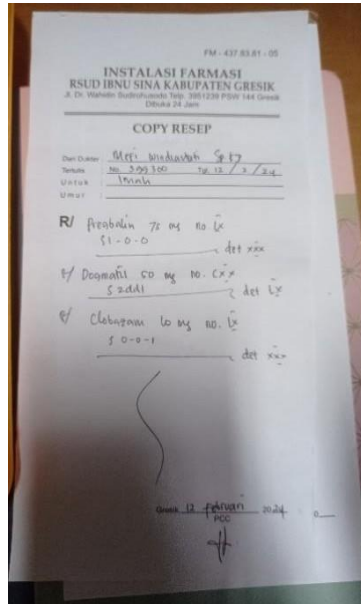 FM - 437.83.81 - 05
INSTALASI FARMASI
RSUD IBNU SINA KABUPATEN GRESIK
Jl. Dr. Wahidin Sudirohusodo Telp. 3951239 PSW 144 Gresik
Dibuka 24 Jam
COPY RESEP
Dari Dokter : Meri Windiastuti Sp
Tertulis : No. 399300 Tgl. 12 / 2 / 24
Untuk : Imah
Umur :
R/ Pregabalin 75 mg no. Lx
S 1-0-0
det xxx
R/ Dogmatil 50 mg no. Cxx
S 2dd1
det Lx
R/ Clobazam 10 mg no. Lx
S 0-0-1
det xxx
Gresik 12 Februari 2024
PCC